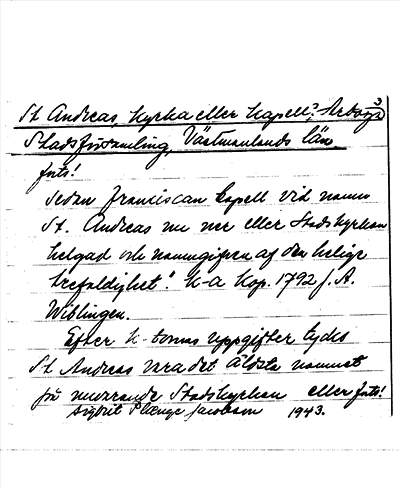 St Andreas, kyrka eller kapell?, Arboga 3
Stadsförsamling, Västmanlands län
forts!
sedan Franciscan Capell vid namn
St. Andreas nu ner eller Stadskyrkan
helgad och namngifven af den helige
trefaldighet". K-a kop. 1792 f. A.
Wiblingen.
Efter K-tornas uppgifter tycks
St. Andreas vara det äldsta namnet
på nuvarande Stadskyrkan eller forts!
Sigbrit Plænge Jacobson 1943.